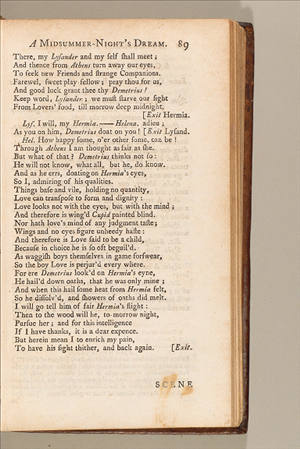 A MIDSUMMER-NIGHT'S DREAM. 89
There, my Lysander and my self shall meet;
And thence from Athens turn away our eyes,
To seek new Friends and strange Companions.
Farewel, sweet play-fellow; pray thou for us,
And good luck grant thee thy Demetrius!
Keep word, Lysander; we must starve our sight
From Lovers' food, till morrow deep midnight.
[Exit Hermia.
Lys. I will, my Hermia.——Helena. adieu;
As you on him, Demetrius doat on you! [Exit Lysand.
Hel. How happy some, o'er other some, can be!
Through Athens I am thought as fair as she.
But what of that? Demetrius thinks not so:
He will not know, what all, but he, do know.
And as he errs, doating on Hermia's eyes,
So I, admiring of his qualities.
Things base and vile, holding no quantity,
Love can transpose to form and dignity:
Love looks not with the eyes, but with the mind;
And therefore is wing'd Cupid painted blind.
Nor hath love's mind of any judgment taste;
Wings and no eyes figure unheedy haste:
And therefore is Love said to be a child,
Because in choice he is so oft beguil'd.
As waggish boys themselves in game forswear,
So the boy Love is perjur'd every where.
For ere Demetrius look'd on Hermia's eyne,
He hail'd down oaths, that he was only mine;
And when this hail some heat from Hermia felt,
So he dissolv'd, and showers of oaths did melt.
I will go tell him of fair Hermia's flight:
Then to the wood will he, to-morrow night,
Pursue her; and for this intelligence
If I have thanks, it is a dear expence.
But herein mean I to enrich my pain,
To have his sight thither, and back again. [Exit.
SCENE